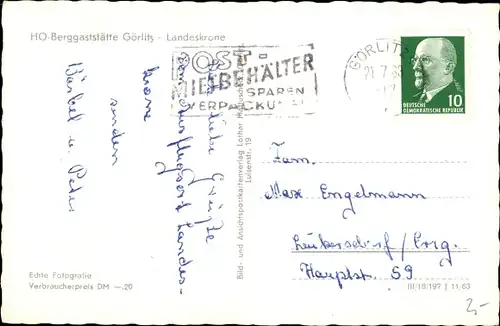 HO-Berggaststätte Görlitz - Landeskrone
POST-
BEHÄLTER
SPAREN
GÖRLITZ
21.7.
DEUTSCHE
DEMOKRATISCHE REPUBLIK
10
liebe Grüße
vom Ausflugsort Landes-
krone
senden
Bärbel u. Peter
Bild- und Ansichtspostkartenverlag Lothar
Luisenstr. 19
Fam.
Max Engelmann
Leukersdorf/Erzg.
Hauptstr. 59
Echte Fotografie
Verbraucherpreis DM —.20
III/18/197 | 11/63
2,-